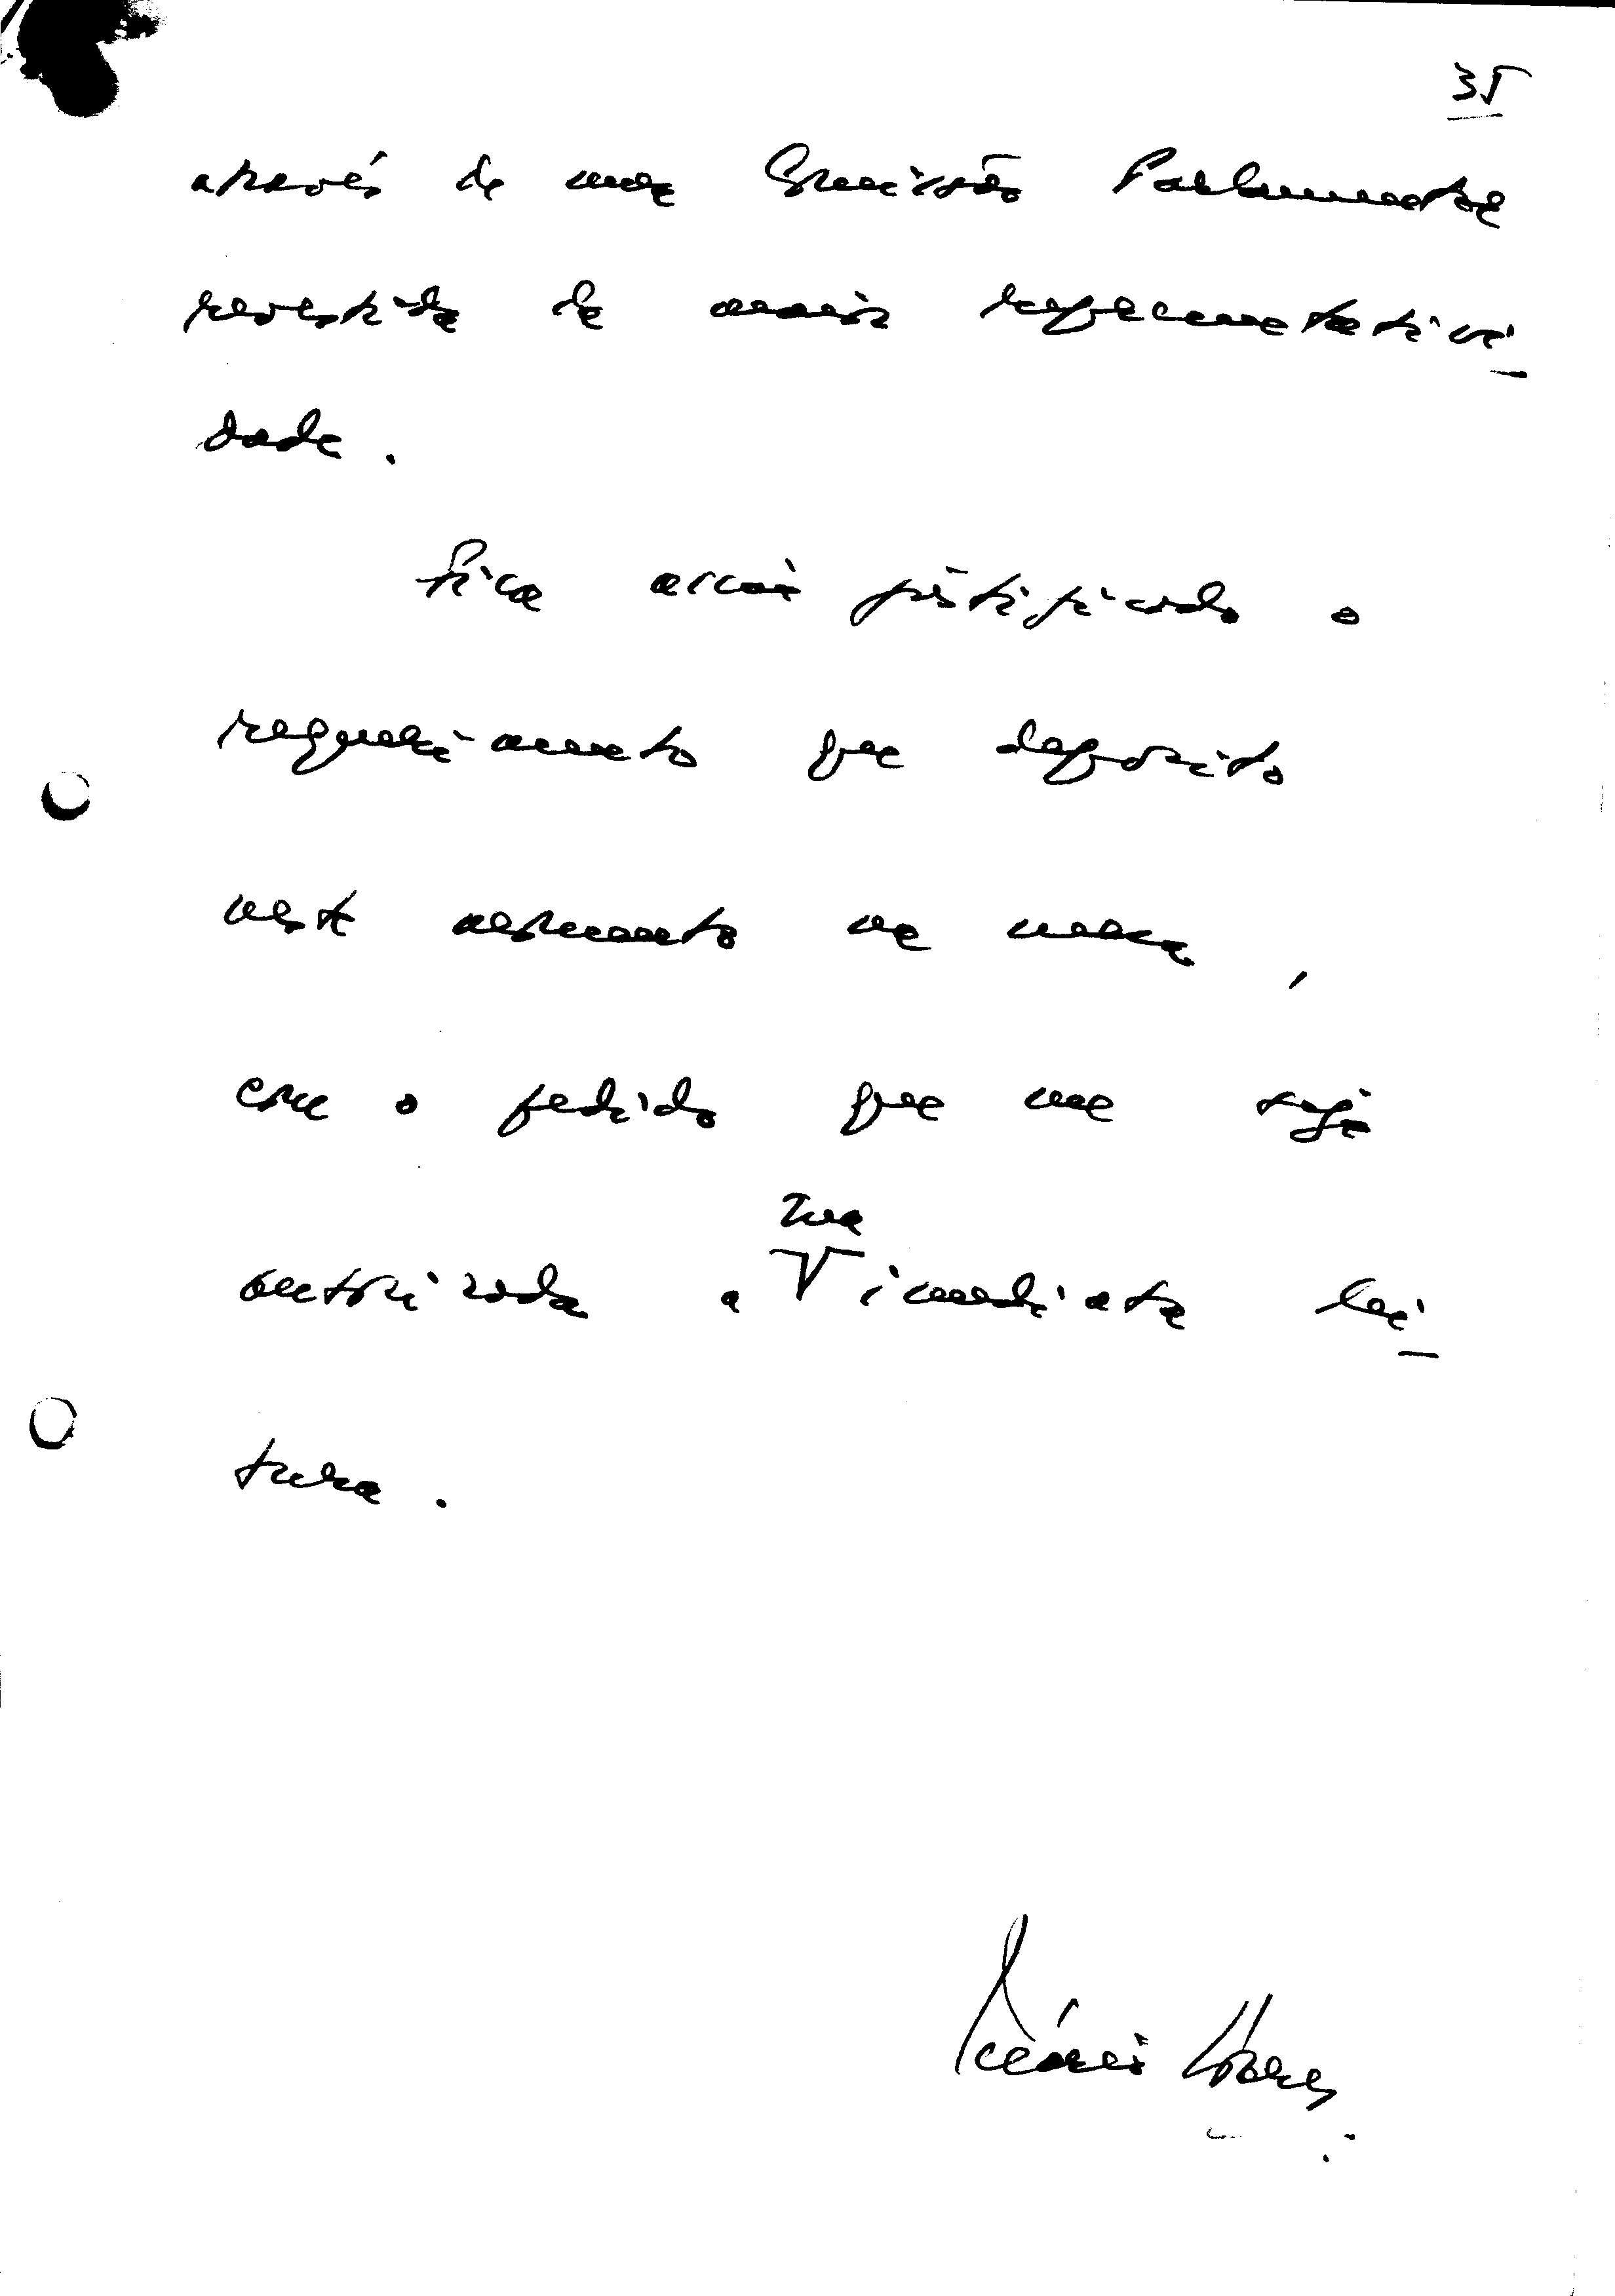 35
através de uma Comissão Parlamentar
revestida de maior representativi-
dade.
Fica assim justificado o
requerimento que deposito
neste momento na mesa,
com o pedido que me seja
autorizada a sua imediata lei-
tura.